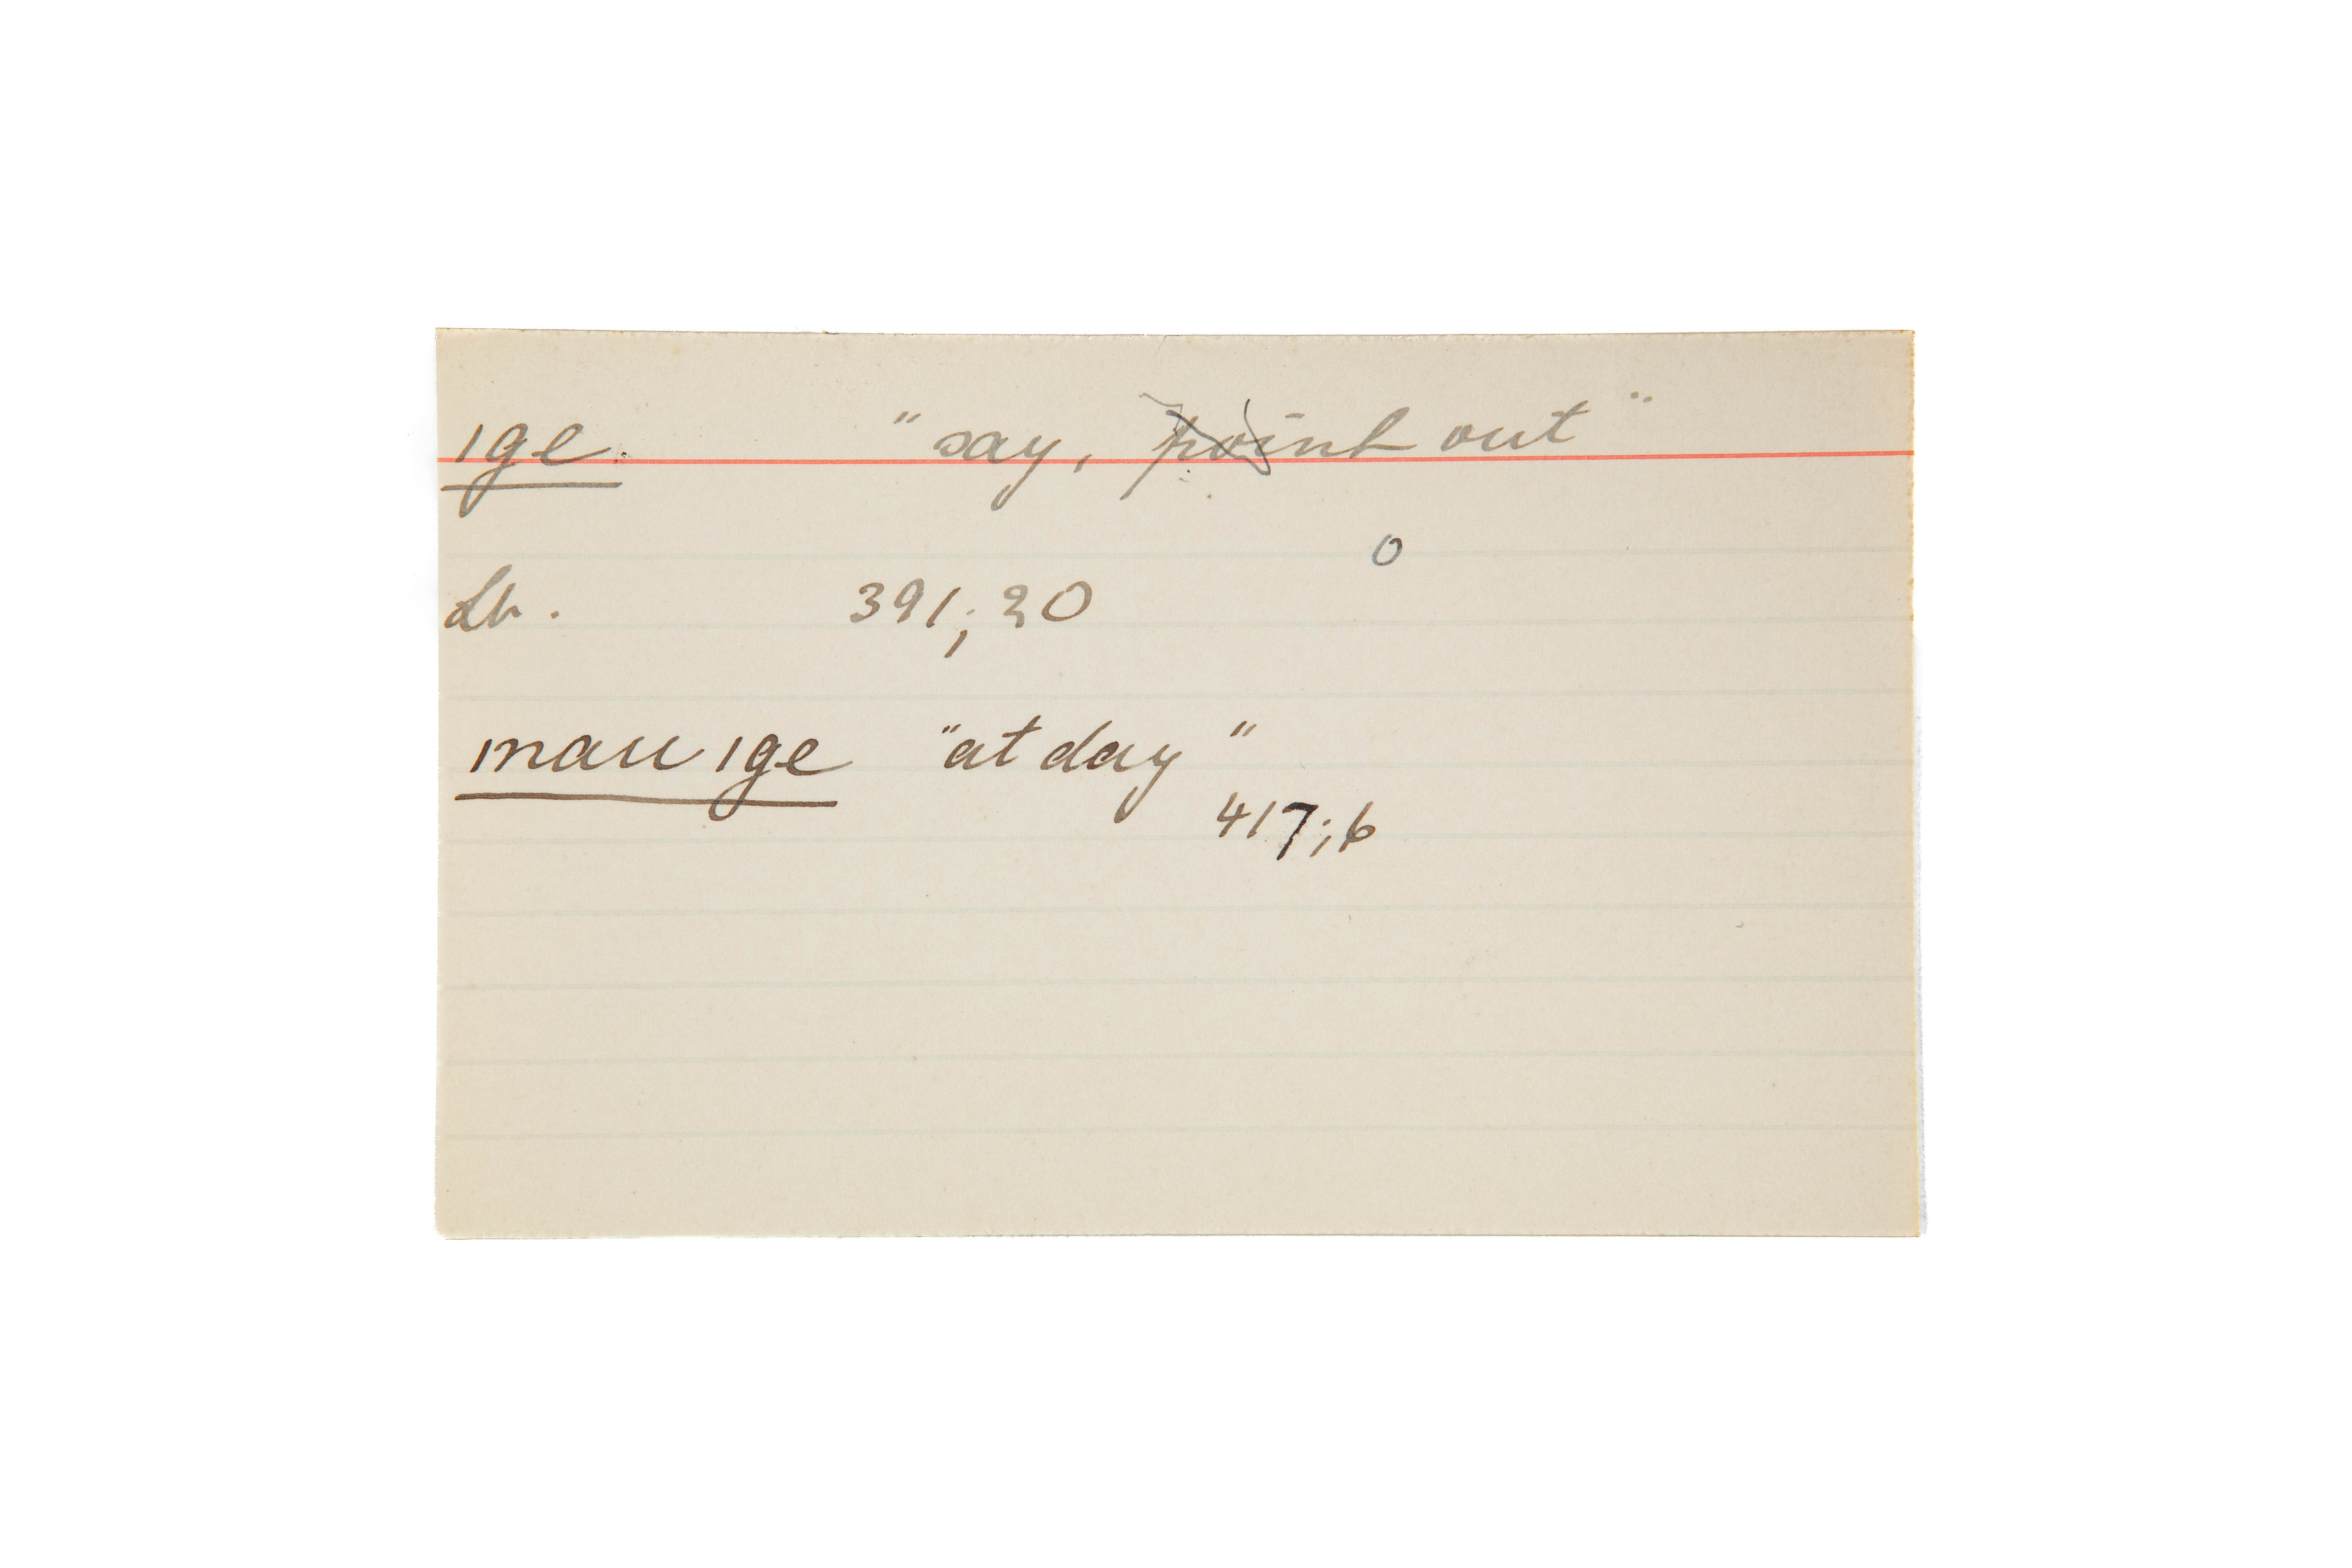 ıge "say, point out"
o
Lb. 391; 20
ınaıı ıge "at day"
417; 6